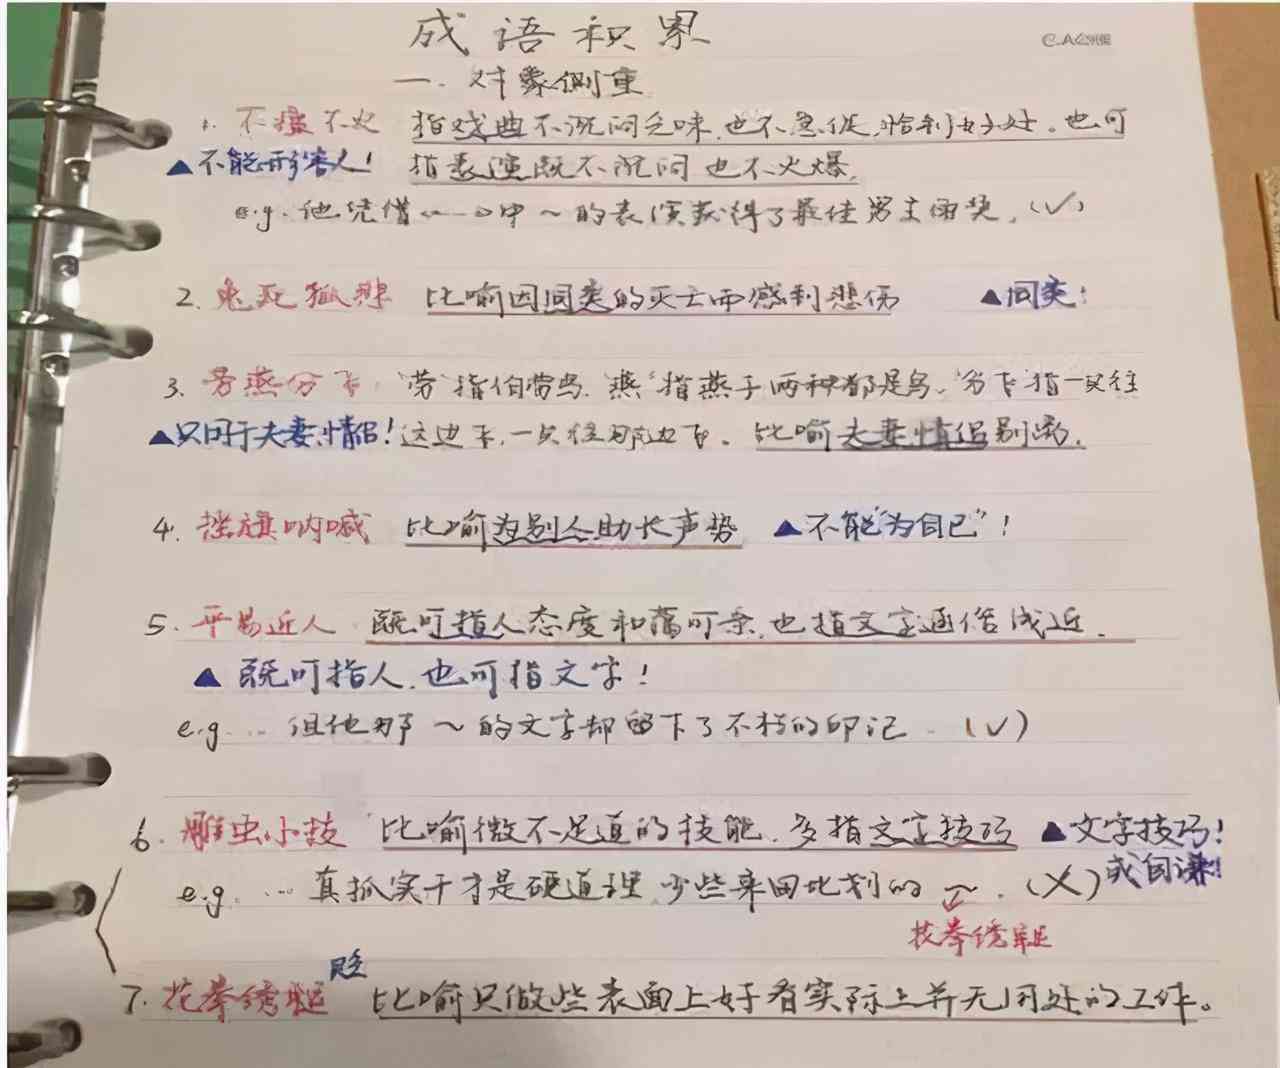 成语积累
一. 对象侧重
1. 不瘟不火 指戏曲不沉闷乏味,也不急促,恰到好处。也可
▲不能形容人! 指表演既不沉闷也不火爆.
e.g. 他凭借《……》中～的表演获得了最佳男主角奖. (✓)
2. 兔死狐悲 比喻因同类的灭亡而感到悲伤 ▲同类!
3. 劳燕分飞 "劳"指伯劳鸟."燕"指燕子两种都是鸟."分飞"指一只往
▲只用于夫妻、情侣! 这边飞,一只往那边飞。比喻夫妻、情侣别离.
4. 摇旗呐喊 比喻为别人助长声势 ▲不能"为自己"!
5. 平易近人 既可指人态度和蔼可亲,也指文字通俗浅近.
▲ 既可指人,也可指文字!
e.g. … 但他那～的文字却留下了不朽的印记. (✓)
6. 雕虫小技 比喻微不足道的技能,多指文字技巧 ▲文字技巧!
或自谦!
e.g. … 真抓实干才是硬道理,少些来回比划的～. (✗)
花拳绣腿
7. 花拳绣腿 贬 比喻只做些表面上好看实际上并无用处的工作。